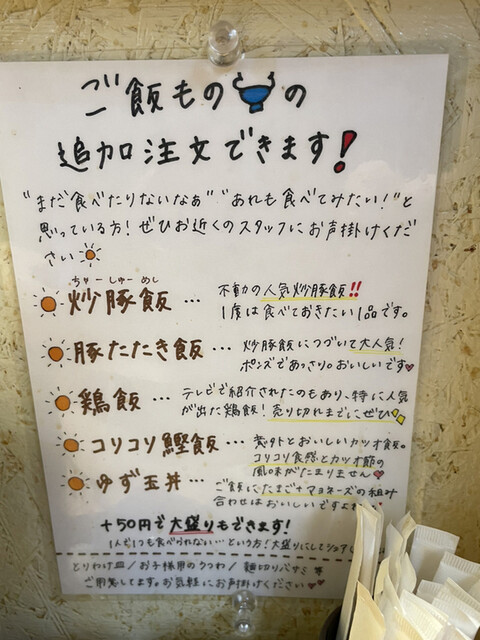 ご飯もの の
追加注文できます!
"まだ食べたりないなぁ""あれも食べてみたい!"と
思っている方!ぜひお近くのスタッフにお声掛けくだ
さい
ちゃーしゅーめし
炒豚飯 … 不動の人気炒豚飯!!
1度は食べておきたい1品です。
豚たたき飯 … 炒豚飯につづいて大人気!
ポンズであっさり。おいしいです
鶏飯 … テレビで紹介されたのもあり、特に人気
が出た鶏飯!売り切れまでにぜひ
コリコリ鰹飯 … 意外とおいしいカツオ飯。
コリコリ食感とカツオ節の
風味がたまりません
ゆず玉丼 … ご飯にたまご+マヨネーズの組み
合わせはおいしいですよね
+50円で大盛りもできます!
1人だつも食べられない…という方!大盛りにしてシェア
とりわけ皿/お子様用のうつわ/麺切りバサミ 等
ご用意してます。お気軽にお声掛けください